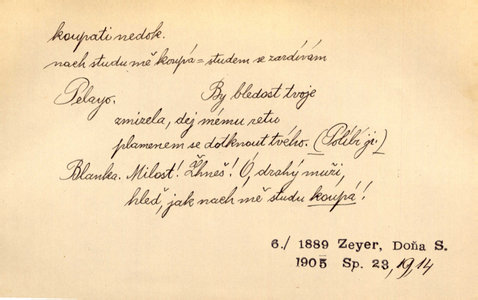 koupati nedok.
nach studu mě koupá = studem se zardívám
Pelayo. By bledost tvoje
zmizela, dej mému retu
plamenem se dotknout tvého. (Políbí ji.)
Blanka. Milost! Žhneš! Ó, drahý muži,
hleď, jak nach mě studu koupá!
6./ 1889 Zeyer, Doňa S.
1905 Sp. 23, 19,14